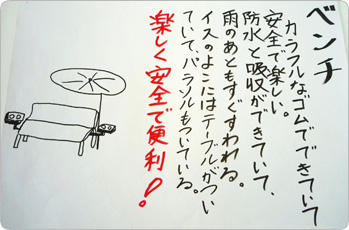 ベンチ
カラフルなゴムでできていて
安全で楽しい。
防水と吸収ができていて、
雨のあともすぐすわれる。
イスのよこにはテーブルがつい
ていて、パラソルもついている。
楽しく安全で便利!